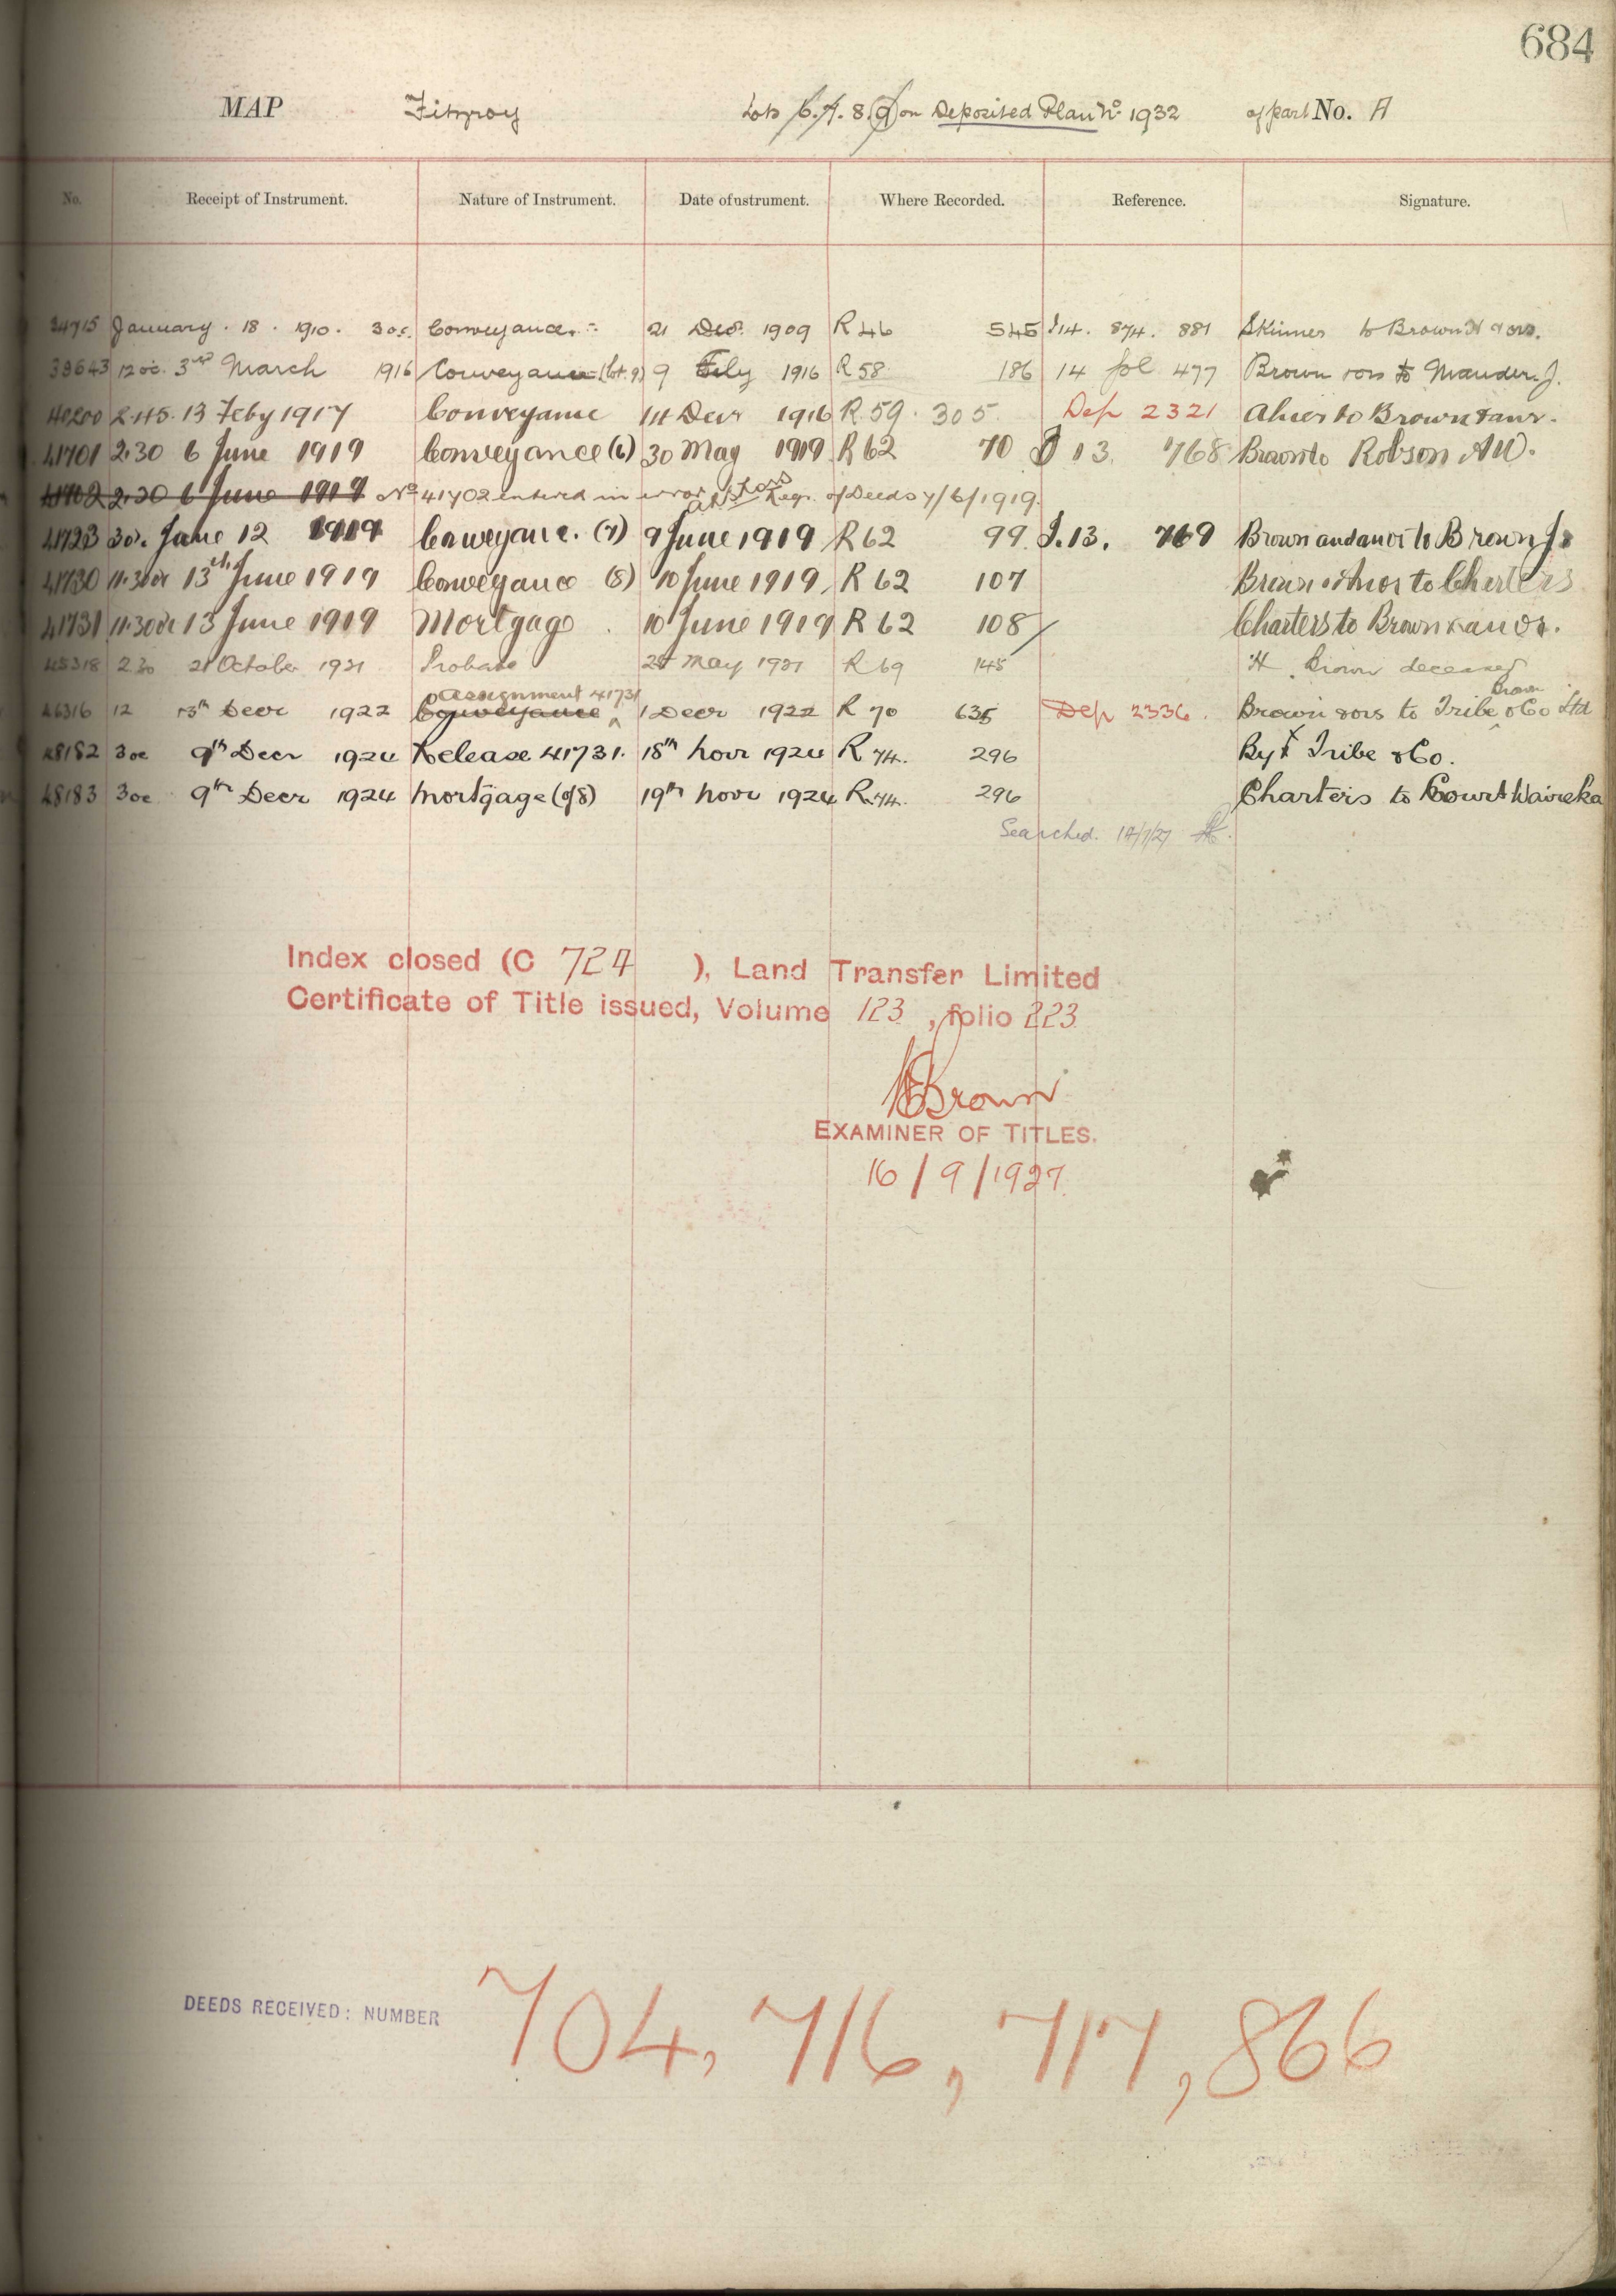 684
MAP Fitzroy Lots 6. 7. 8. 9 on Deposited Plan No 1932 of part No. A
No. Receipt of Instrument. Nature of Instrument. Date of ustrument. Where Recorded. Reference. Signature.
34715 January . 18 . 1910 . 3 oc. Conveyance. 21 Dec. 1909 R 46 545 I 14. 874. 881 Skinner to Brown H & ors.
39643 12 oc. 3rd March 1916 Conveyance (lot 9) 9 Feby 1916 R 58 186 14 fol 477 Brown & ors to Mander. J.
40200 2.45. 13 Feby 1917 Conveyance 14 Decr 1916 R. 59. 305 Dep 2321 to Brown & anr.
41701 2.30 6 June 1919 Conveyance (6) 30 May 1919 R 62 70 J 13. 768 Brown to Robson AW.
41702 2.30 6 June 1919 No 41702 entered in error Regr. of Deeds 7/6/1919.
41723 3 o. June 12 1919 Conveyance. (7) 9 June 1919 R 62 99. J. 13. 769 Brown and anor to Brown J.
41730 11.30 oc 13th June 1919 Conveyance (8) 10 June 1919, R 62 107 Brown & Anor to Charters
41731 11.30 oc 13 June 1919 Mortgage 10 June 1919 R 62 108 Charters to Brown & anor.
45318 2.30 21 October 1921 Probate May 1921 R 69 145 H. Brown deceased
Assignment 41731 Brown
46316 12 13th Decr 1922 Conveyance 1 Decr 1922 R 70 635 Dep 2336. Brown & ors to Tribe & Co Ltd
48182 3 oc 9th Decr 1924 Release 41731. 18th Novr 1924 R 74. 296 By Tribe & Co.
48183 3 oc 9th Decr 1924 Mortgage (of 8) 19th Novr 1924 R. 74. 296 Charters to Court Waireka
Searched.
Index closed (C 724 ), Land Transfer Limited
Certificate of Title issued, Volume 123, folio 223
Brown
EXAMINER OF TITLES.
16/9/1927.
DEEDS RECEIVED: NUMBER 704, 716, 717, 866